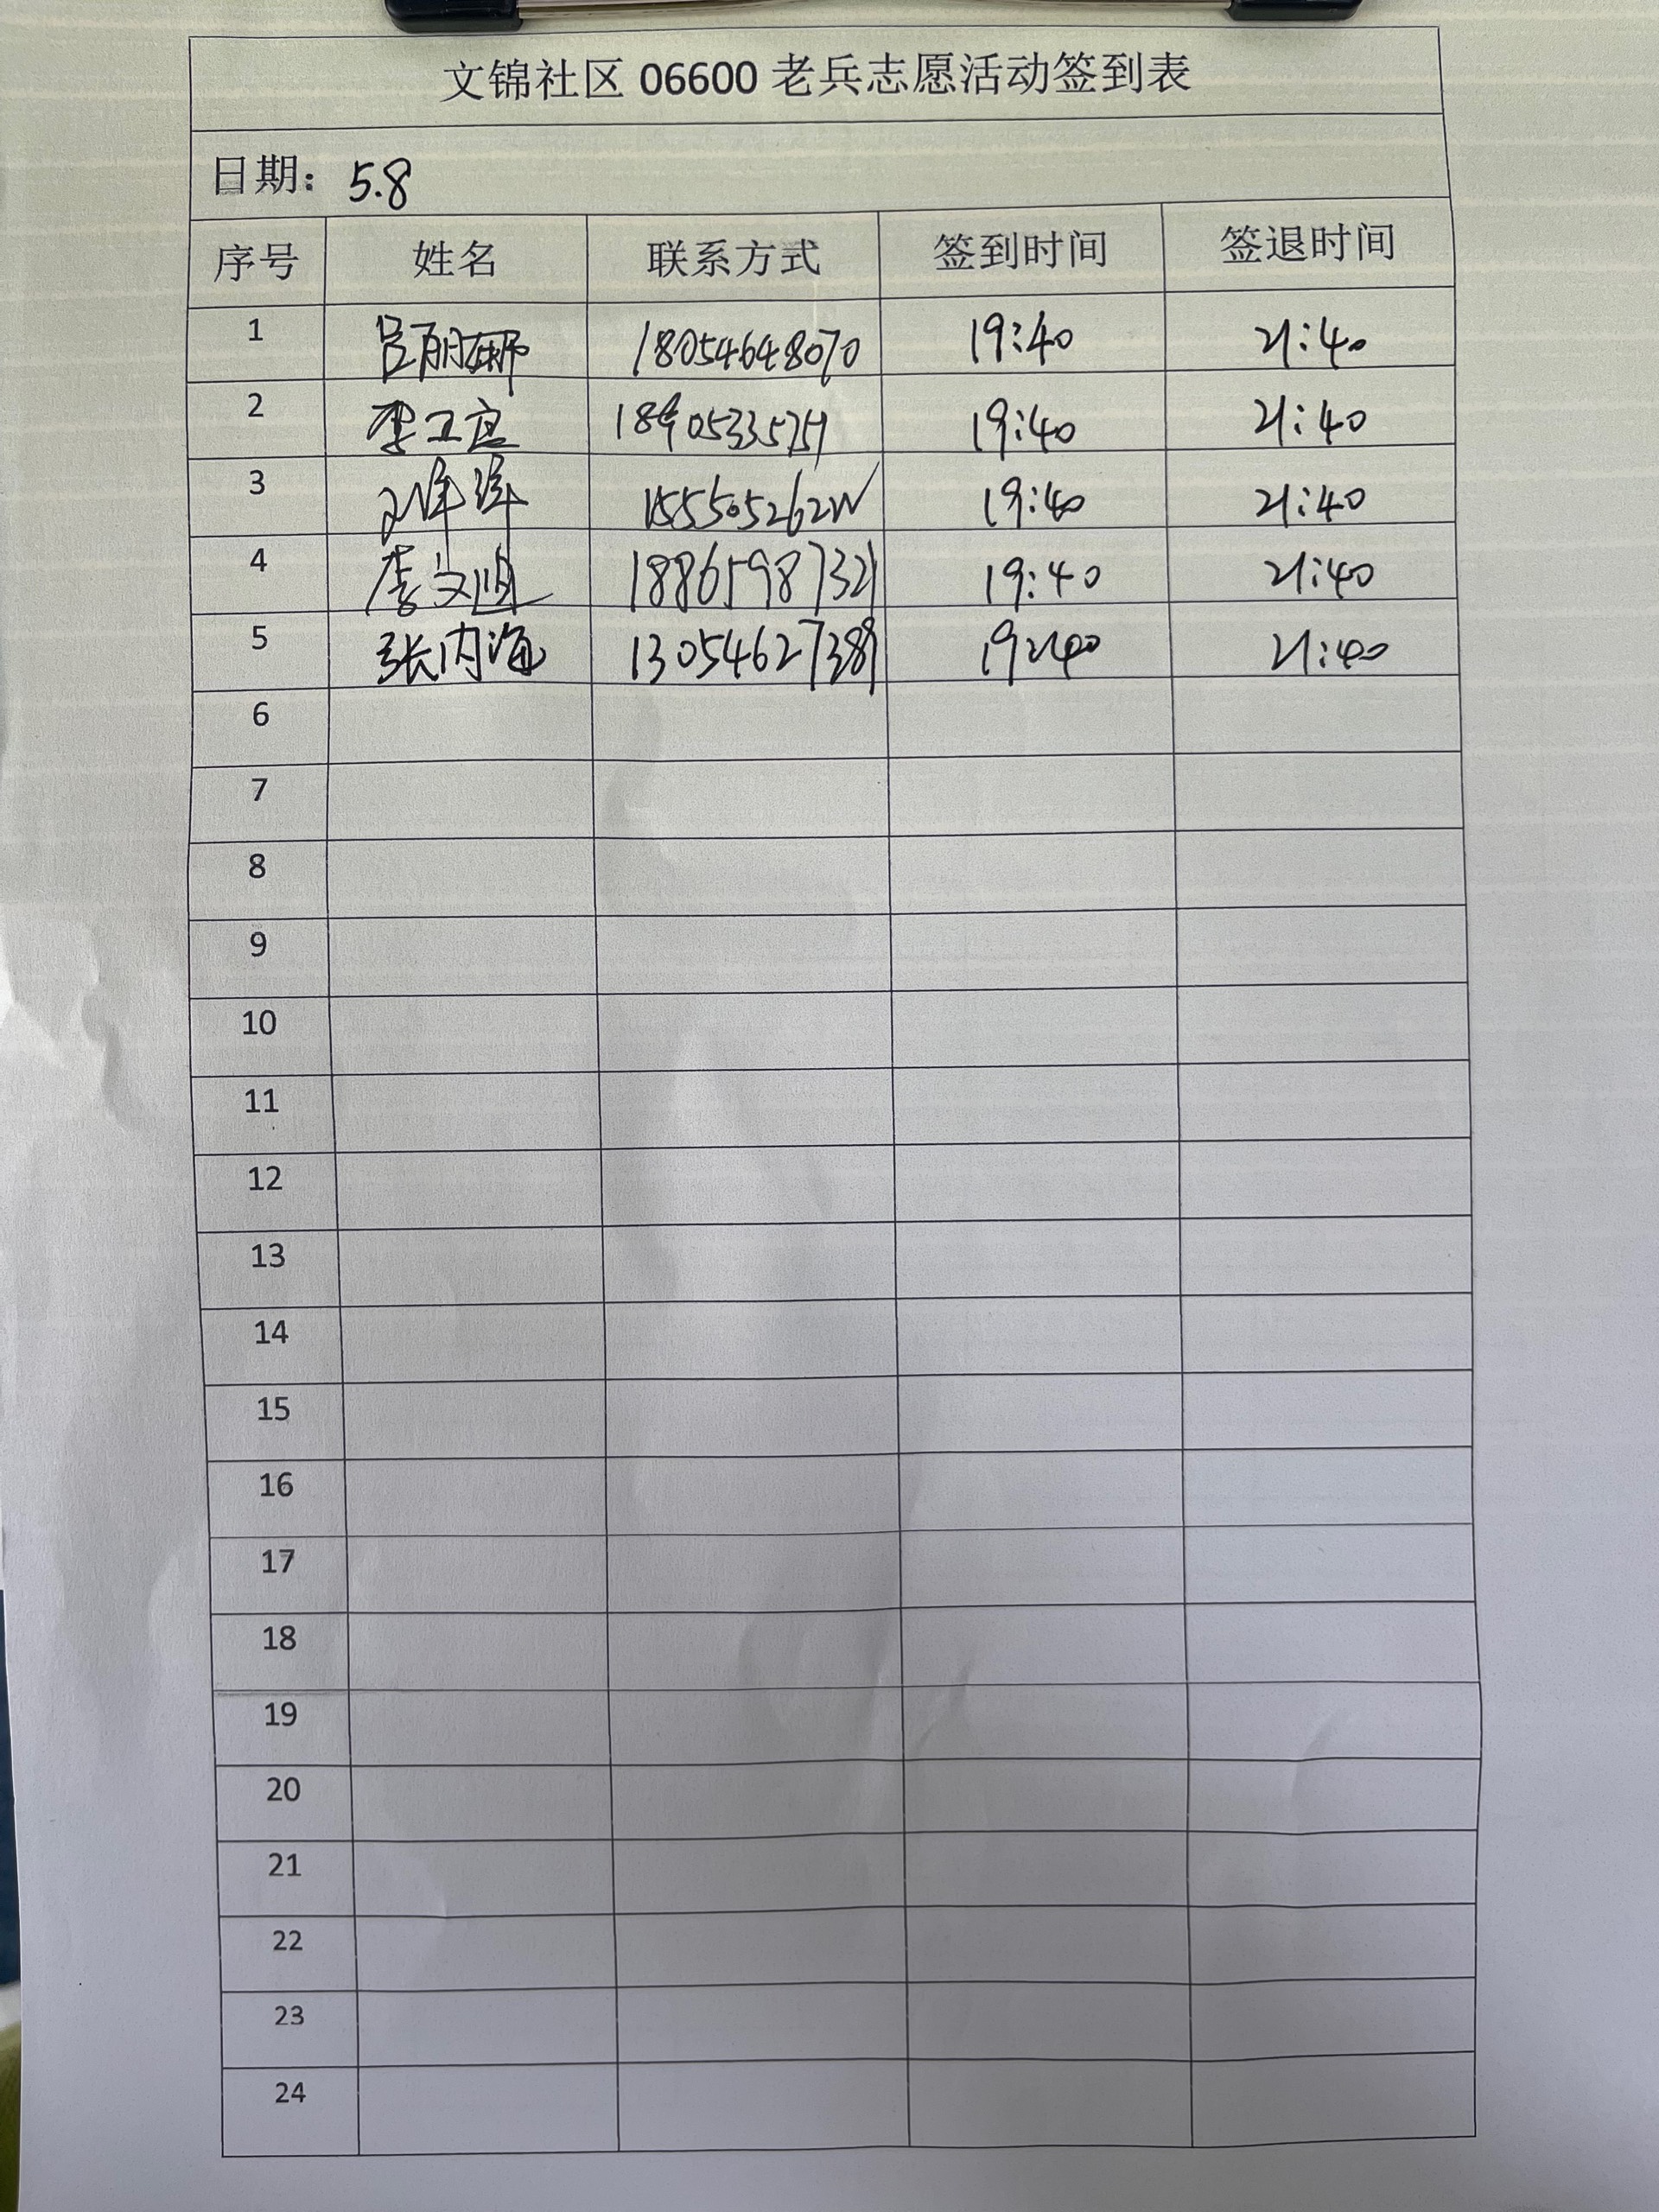 文锦社区 06600 老兵志愿活动签到表
日期: 5.8
序号 姓名 联系方式 签到时间 签退时间
1 吕丽娜 18054648070 19:40 21:40
2 李卫宜 19:40 21:40
3 19:40 21:40
4 李文 18865987321 19:40 21:40
5 张内海 13054627389 19:40 21:40
6
7
8
9
10
11
12
13
14
15
16
17
18
19
20
21
22
23
24